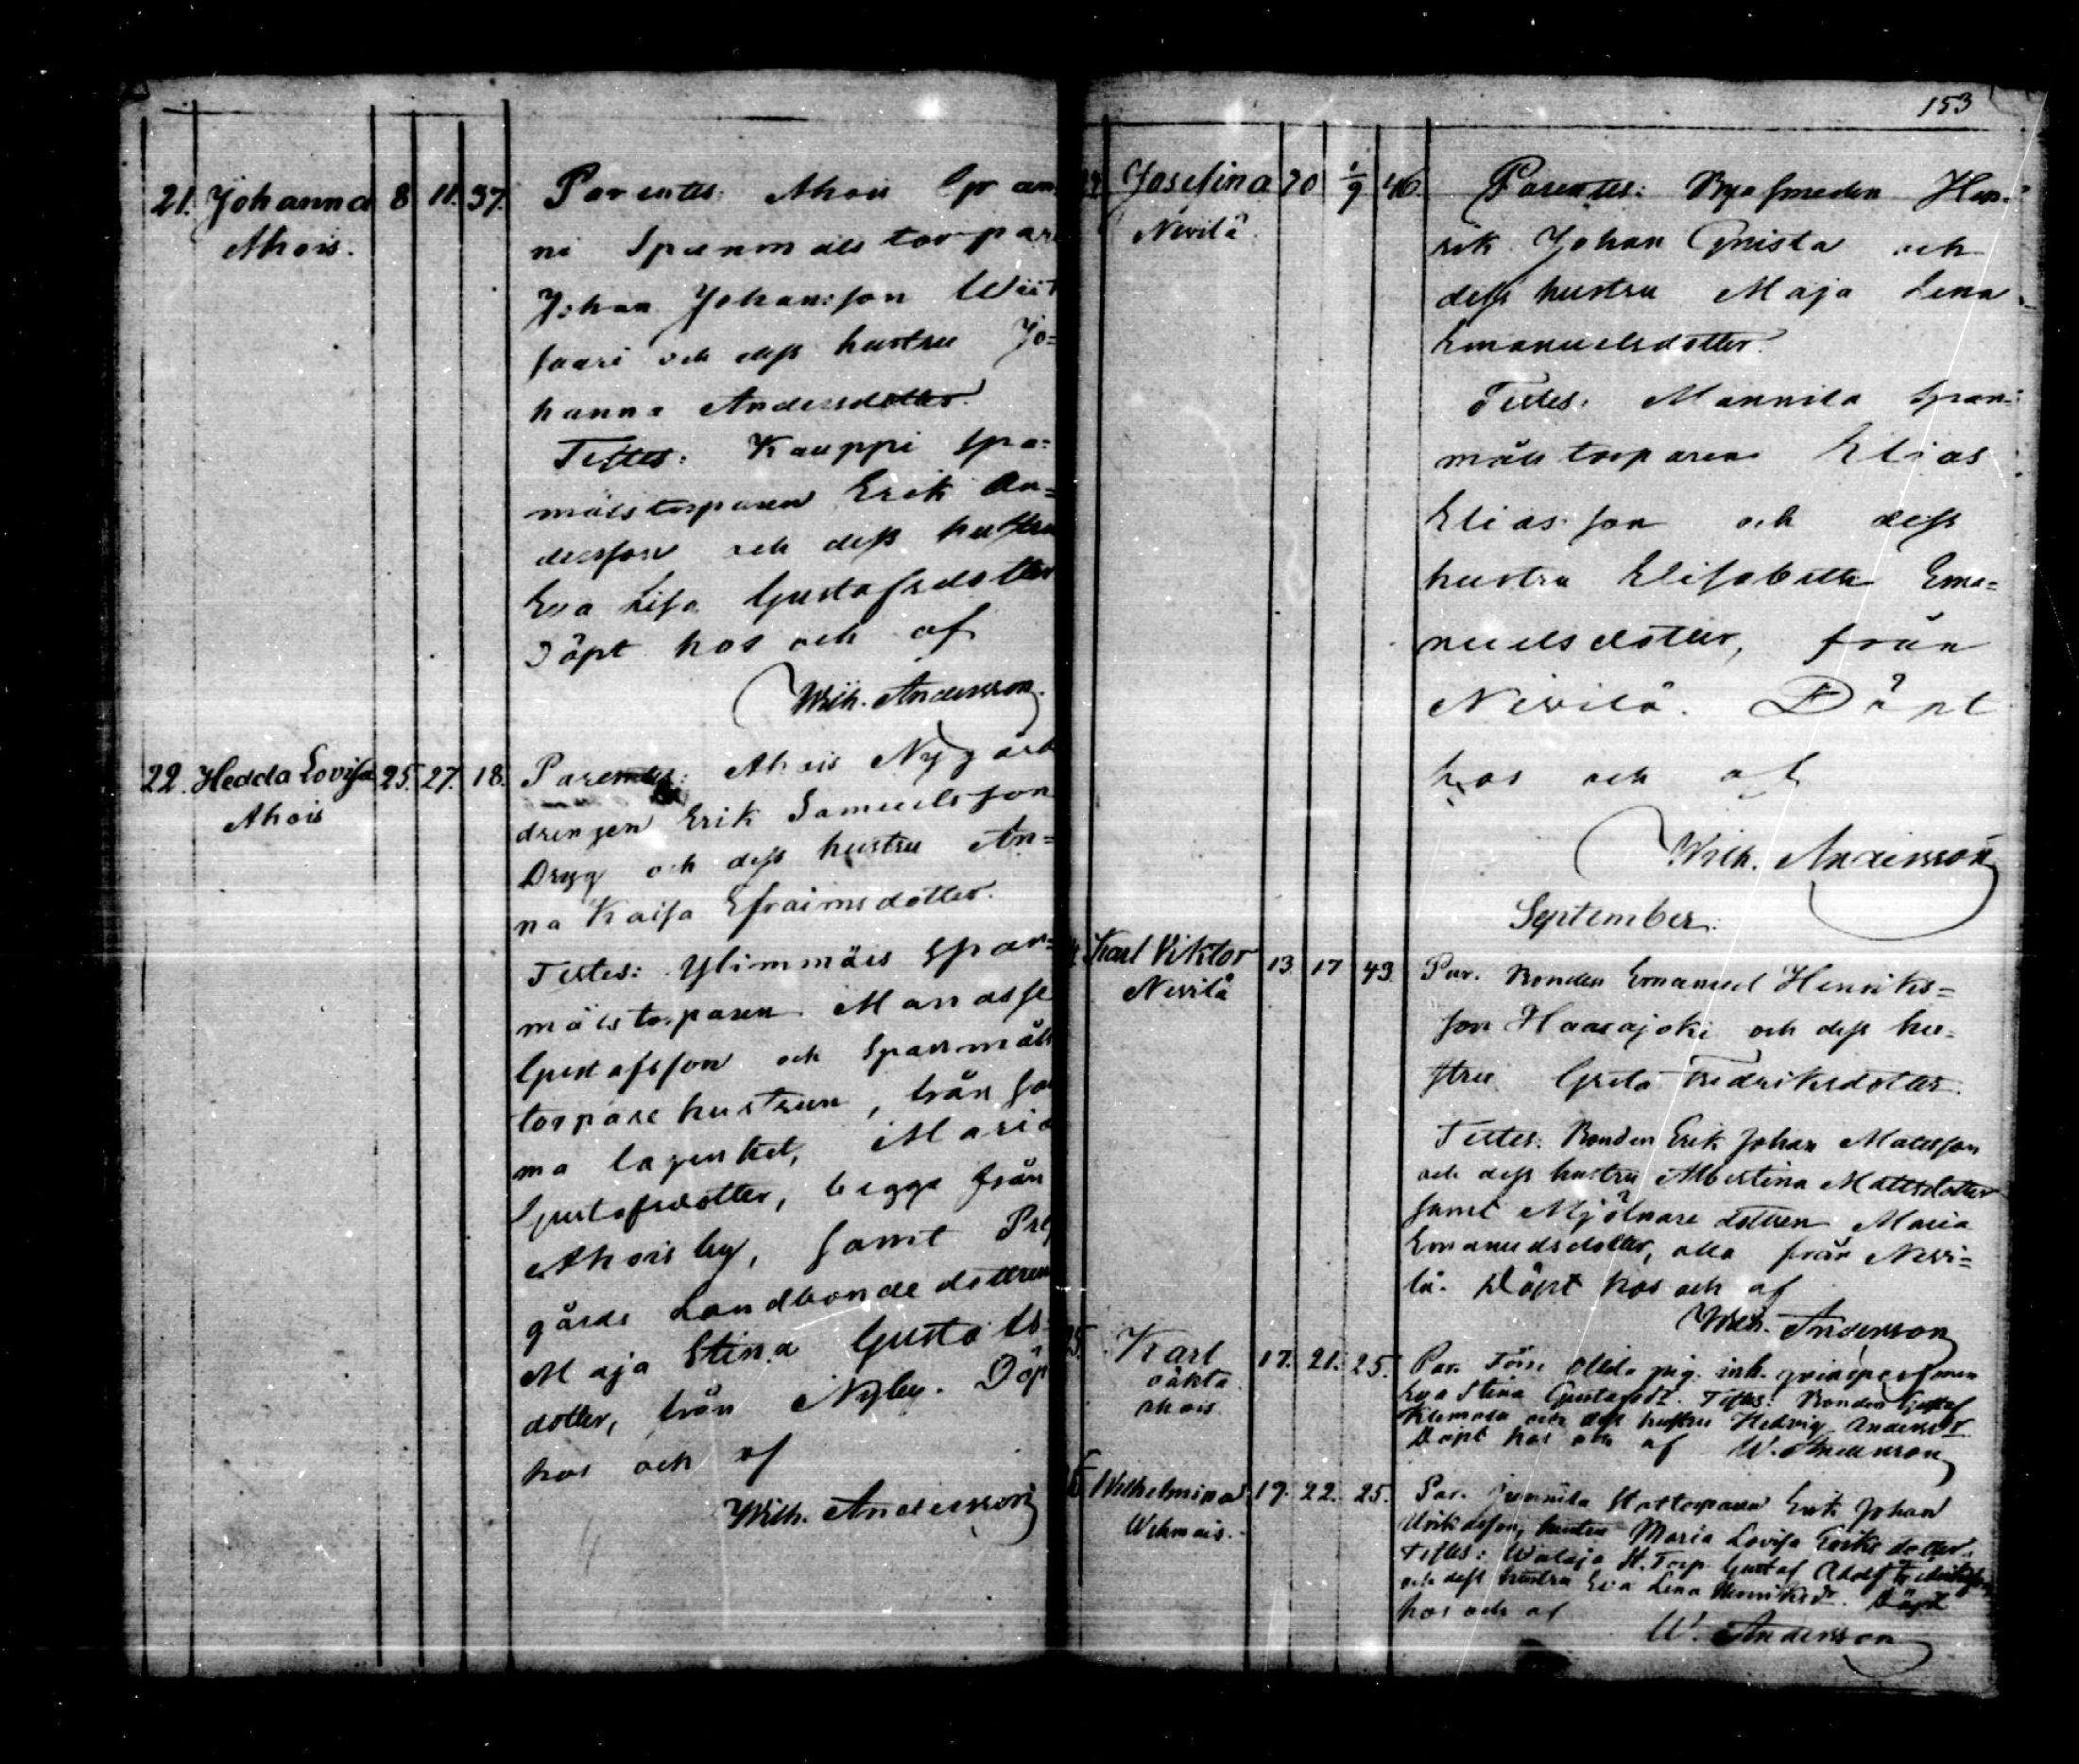 21. Johanna 8 11. 37. Parentes: Ahois
Ahois.
ni Spanmåls torpare
Johan Johansson
saari och dess hustru Jo=
hanna Andersdotter.
Testes: Kauppi Spa=
målstorparen Erik An=
dersson och dess hustru
Eva Lisa Gustafsdotter
Döpt hos och af
Wilh. Andersson.
22. Hedda Lovisa 25. 27. 18. Parentes: Ahois Nygård
Ahois
drengen Erik Samuelsson
Dryg och dess hustru An=
na Kaisa Efraimsdotter.
Testes: Ylimmäis Span=
målstorparen Manasse
Gustafsson och Spanmåls
torpare hustrun, från sa
ma lägenhet, Maria
Gustafsdotter, begge från
Ahois by, samt
gårds Landbonde dottren
Maja Stina Gustafs
dotter, från Nyby. Döp
hos och af
Wilh. Andersson
153
Josefina 20 1/9 46. Parentes: Bysmeden Hen-
Nevilä
rik Johan Gnista och
dess hustru Maja Lena
Emanuelsdotter.
Testes: Mannila Span-
måls torparen Elias
Eliasson och dess
hustru Elisabeth Ema=
nuelsdotter, från
Nevilä. Döpt
hos och af
Wilh. Andersson
September.
Karl Viktor 13 17 43 Par. Bonden Emanuel Henriks=
Nevilä
son Haarajoki och dess hu-
stru Greta Fredriksdotter.
Testes: Bonden Erik Johan Matsson
och dess hustru Albertina Mattsdotter
samt Mjölnare dottren Maria
Emanuelsdotter, alla från Nevi=
lä. Döpt hos och af
Wilh. Andersson
25. Karl 17. 21. 25. Par. inh. qvinspersonen
oäkta
Ahois
Eva Stina Gustafsdr. Testes: Bonden Gustaf
Klemola och dess hustru Hedvig Andersdr
Döpt hos och af W. Andersson
Wilhelmina 19. 22. 25. Par. Erik Johan
Wehmais.
hustru Maria Lovisa Eriksdotter.
Testes: St. Torp. Gustaf Adolf
och dess hustru Eva Lena Henriksdr. Döpt
hos och af
W. Andersson